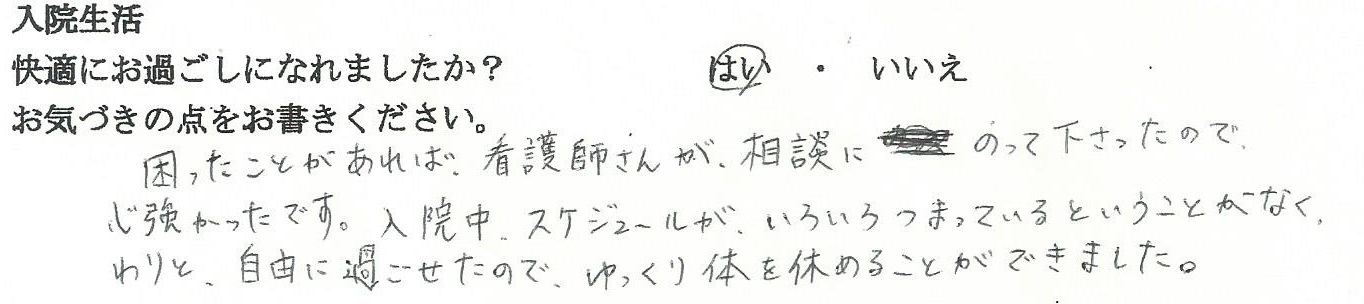 入院生活
快適にお過ごしになれましたか? はい ・ いいえ
お気づきの点をお書きください。
困ったことがあれば、看護師さんが、相談に のって下さったので、
心強かったです。入院中、スケジュールが、いろいろつまっているということがなく、
わりと、自由に過ごせたので、ゆっくり体を休めることができました。